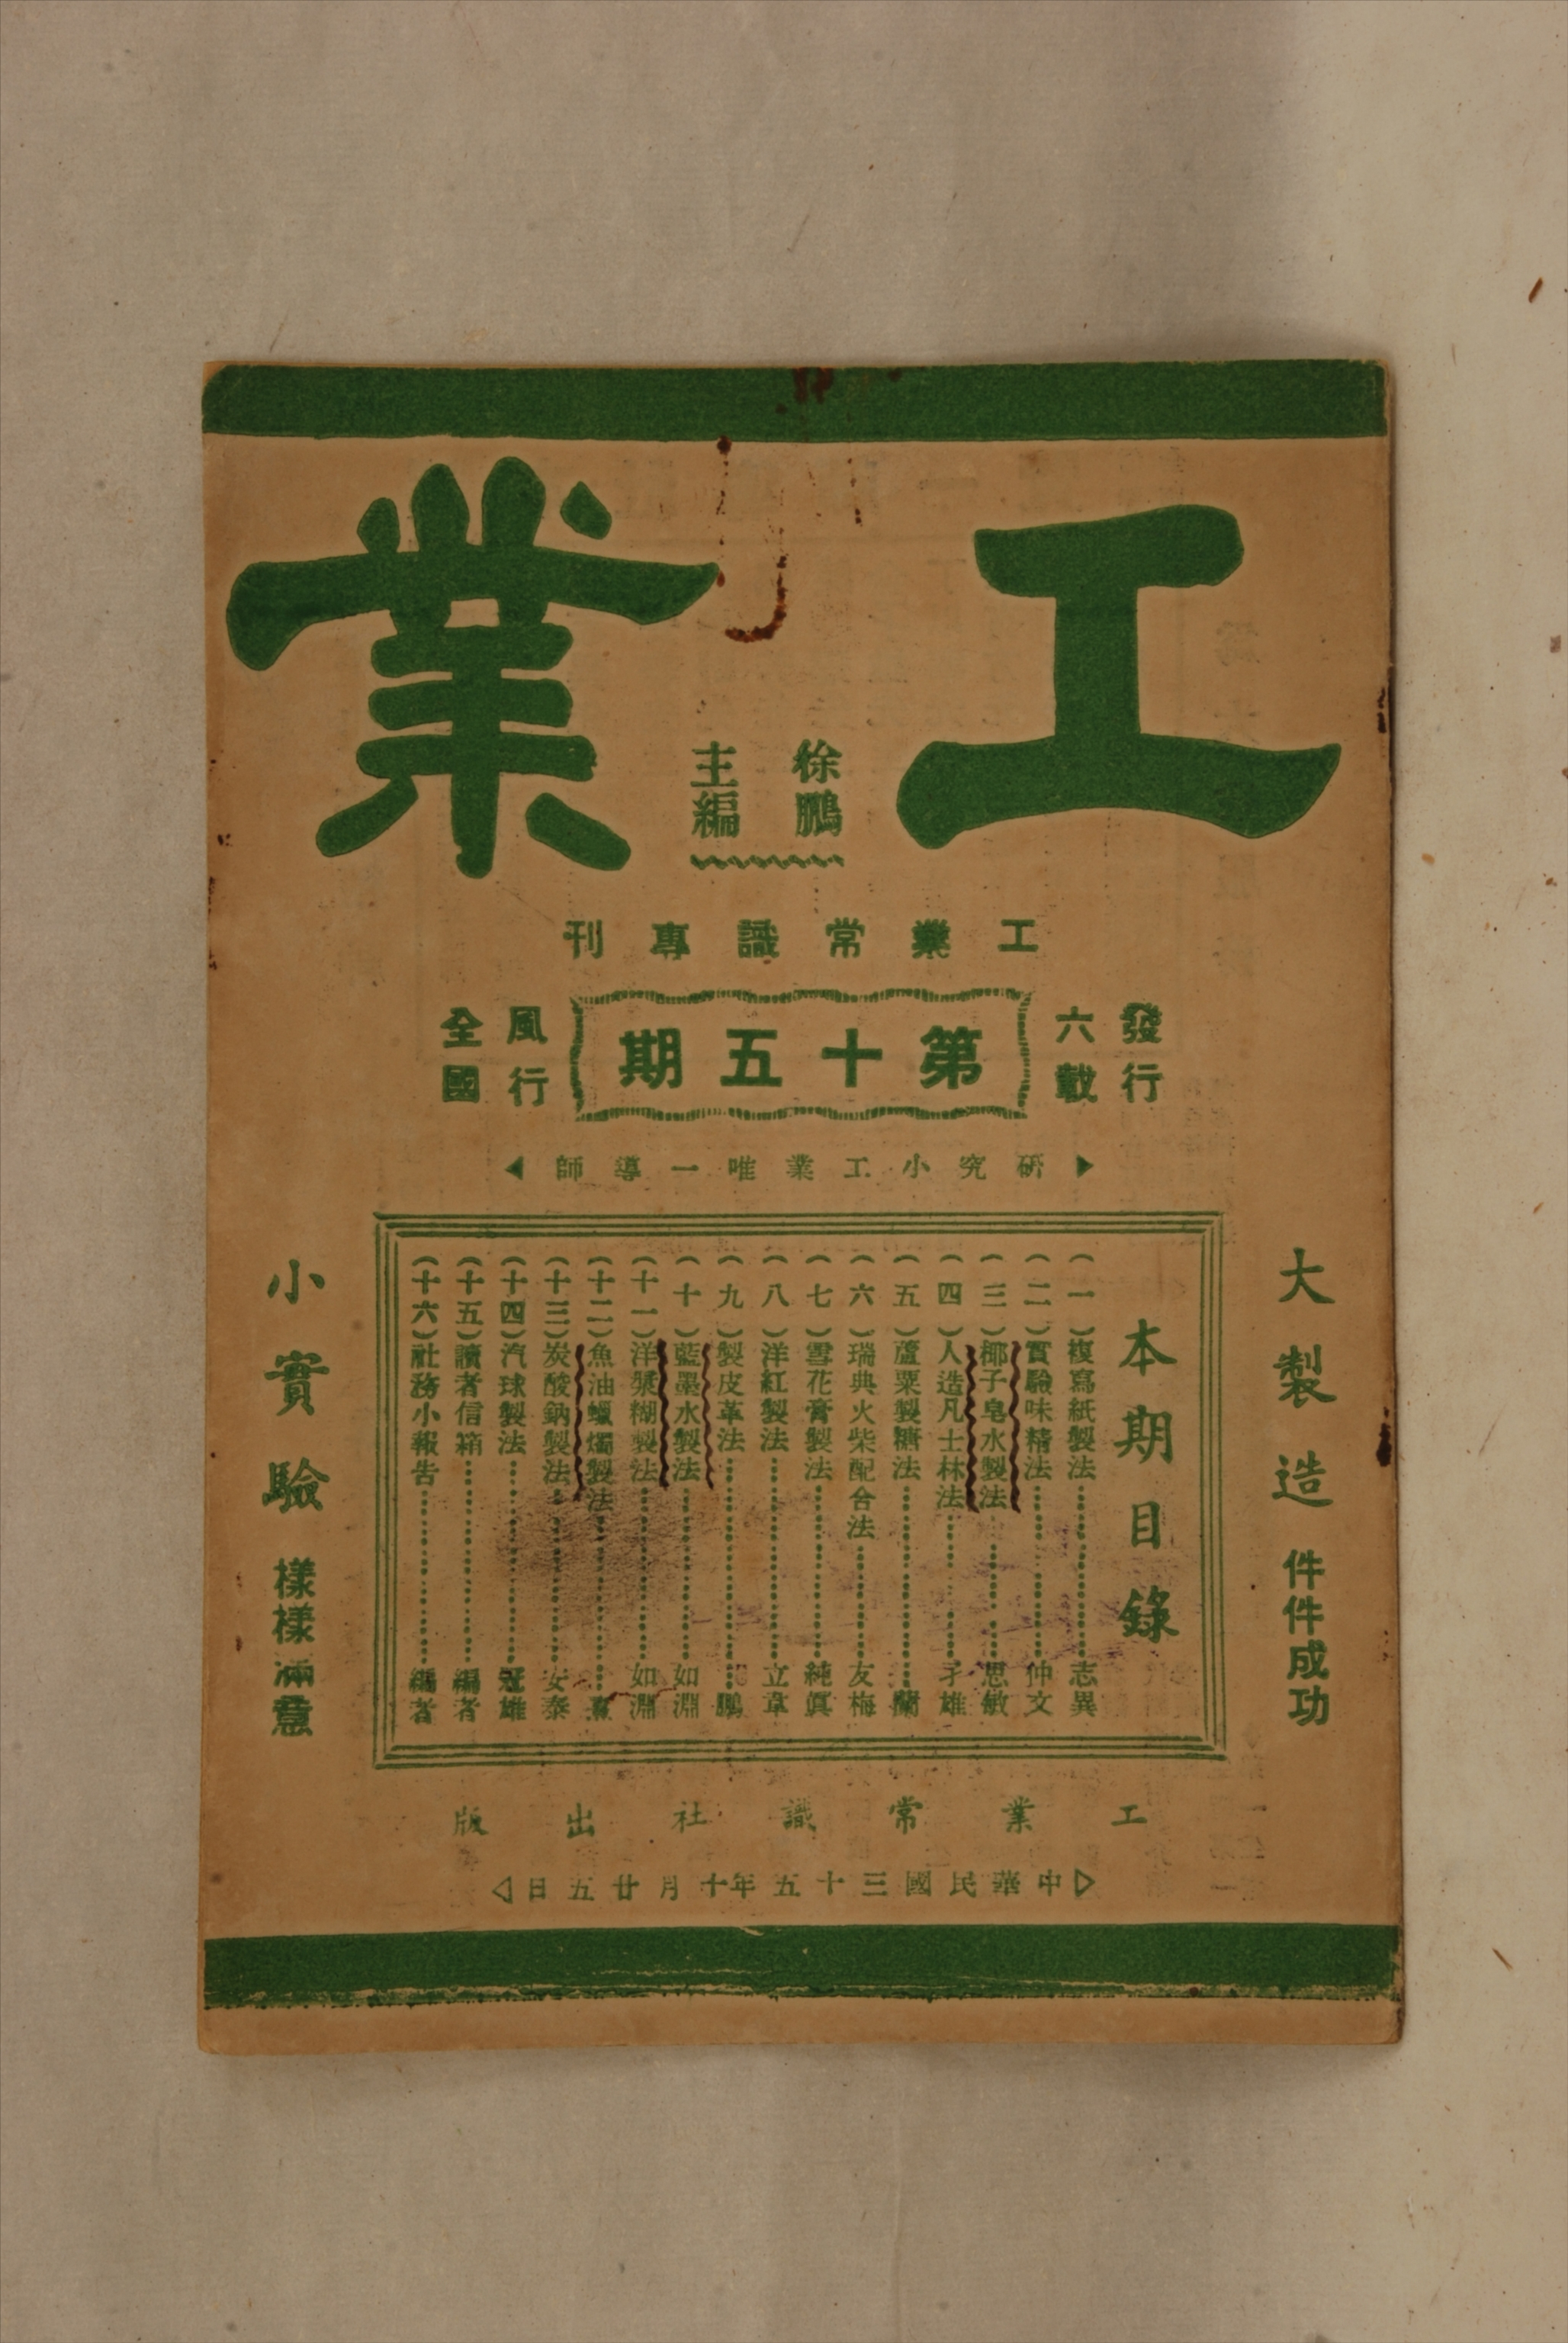 工業
徐鵬
主編
工業常識專刊
發行
六載
第十五期
風行
全國
研究小工業唯一導師
大製造 件件成功
本期目錄
(一)複寫紙製法 志異
(二)實驗味精法 仲文
(三)椰子皂水製法 思敏
(四)人造凡士林法 子雄
(五)蘆粟製糖法 蘭
(六)瑞典火柴配合法 友梅
(七)雪花膏製法 純眞
(八)洋紅製法 立章
(九)製皮革法 鵬
(十)藍墨水製法 如淵
(十一)洋漿糊製法 如淵
(十二)魚油蠟燭製法
(十三)炭酸鈉製法 安泰
(十四)汽球製法 冠雄
(十五)讀者信箱 編者
(十六)社務小報告 編者
小實驗 樣樣滿意
工業常識社出版
中華民國三十五年十月廿五日